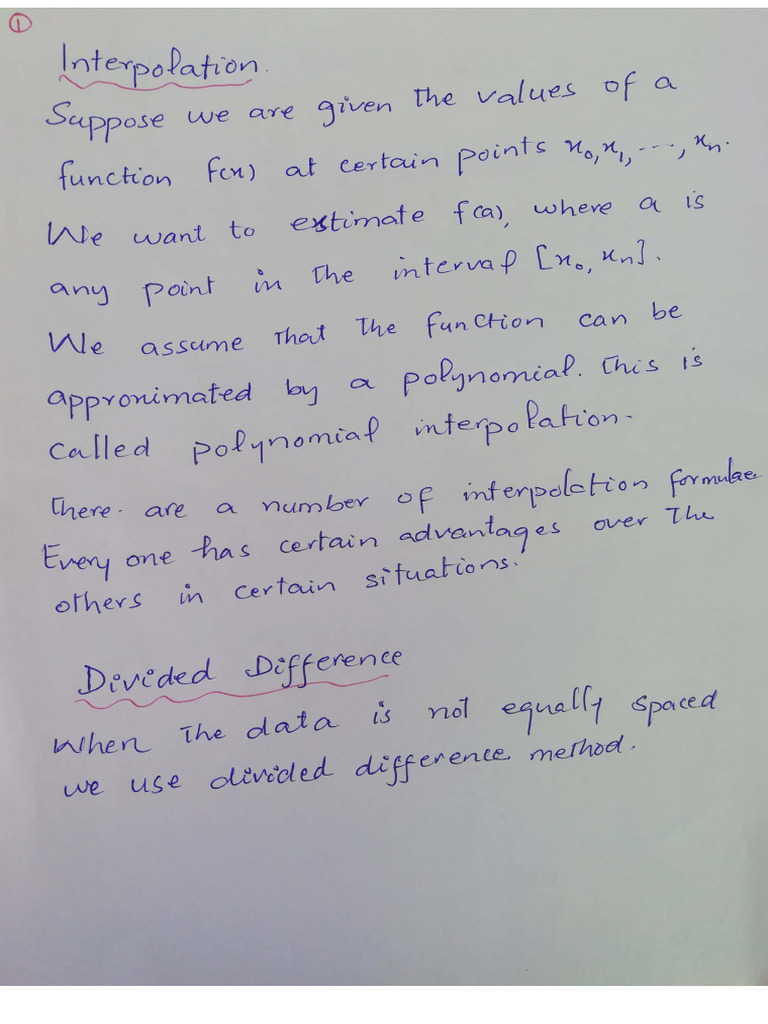 ①
Interpolation.
Suppose we are given the values of a
function f(x) at certain points x₀, x₁, ---, xₙ.
We want to estimate f(a), where a is
any point in the interval [x₀, xₙ].
We assume that the function can be
approximated by a polynomial. This is
called polynomial interpolation.
There are a number of interpolation formulae
Every one has certain advantages over the
others in certain situations.
Divided Difference
When the data is not equally spaced
we use divided difference method.